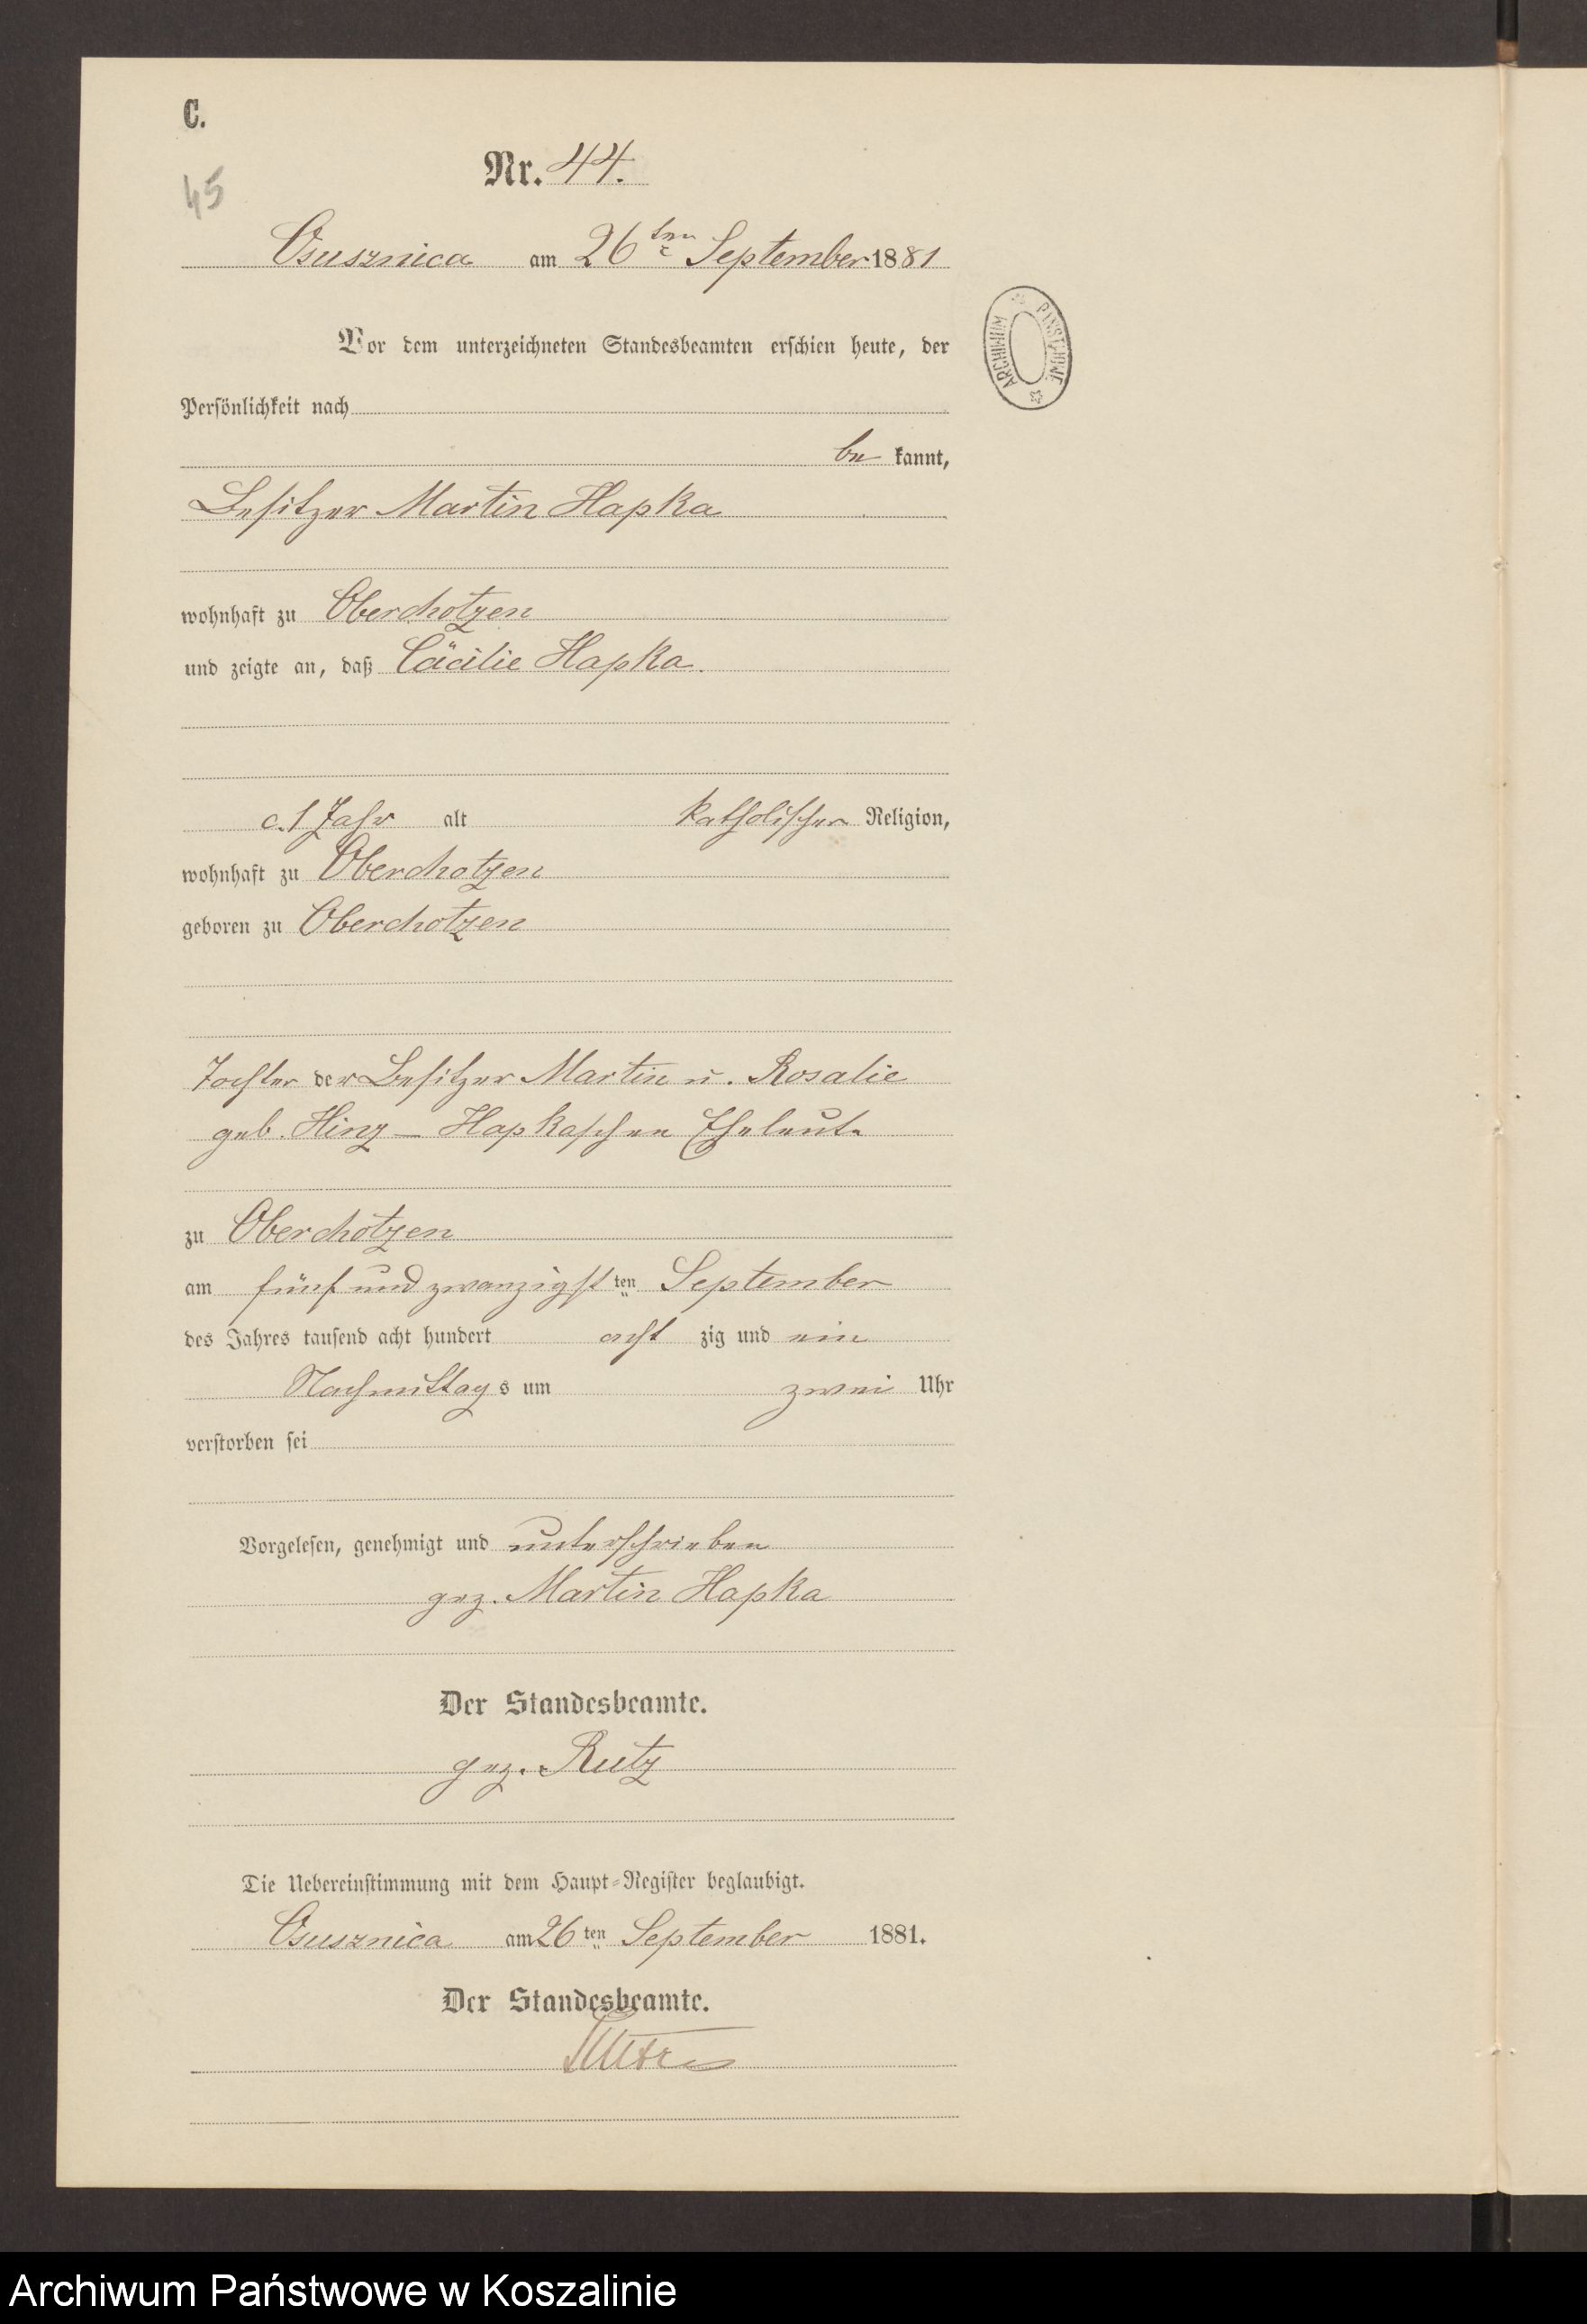 C.
Nr. 44.
45
Osusznica am 26ten September 1881
Vor dem unterzeichneten Standesbeamten erschien heute, der
Persönlichkeit nach
be kannt,
Besitzer Martin Hapka
wohnhaft zu Oberchotzen
und zeigte an, daß Cäcilie Hapka.
c. 1 Jahr alt katholischer Religion,
wohnhaft zu Oberchotzen
geboren zu Oberchotzen
Tochter der Besitzer Martin u. Rosalie
geb. Hinz – Hapkaschen Eheleute
zu Oberchotzen
am fünf und zwanzigsten September
des Jahres tausend acht hundert acht zig und ein
Nachmittags um zwei Uhr
verstorben sei
Vorgelesen, genehmigt und unterschrieben
gez. Martin Hapka
Der Standesbeamte.
gez. Rutz
Die Uebereinstimmung mit dem Haupt-Register beglaubigt.
Osusznica am 26ten September 1881.
Der Standesbeamte.
ARCHIWUM PAŃSTWOWE
Archiwum Państwowe w Koszalinie